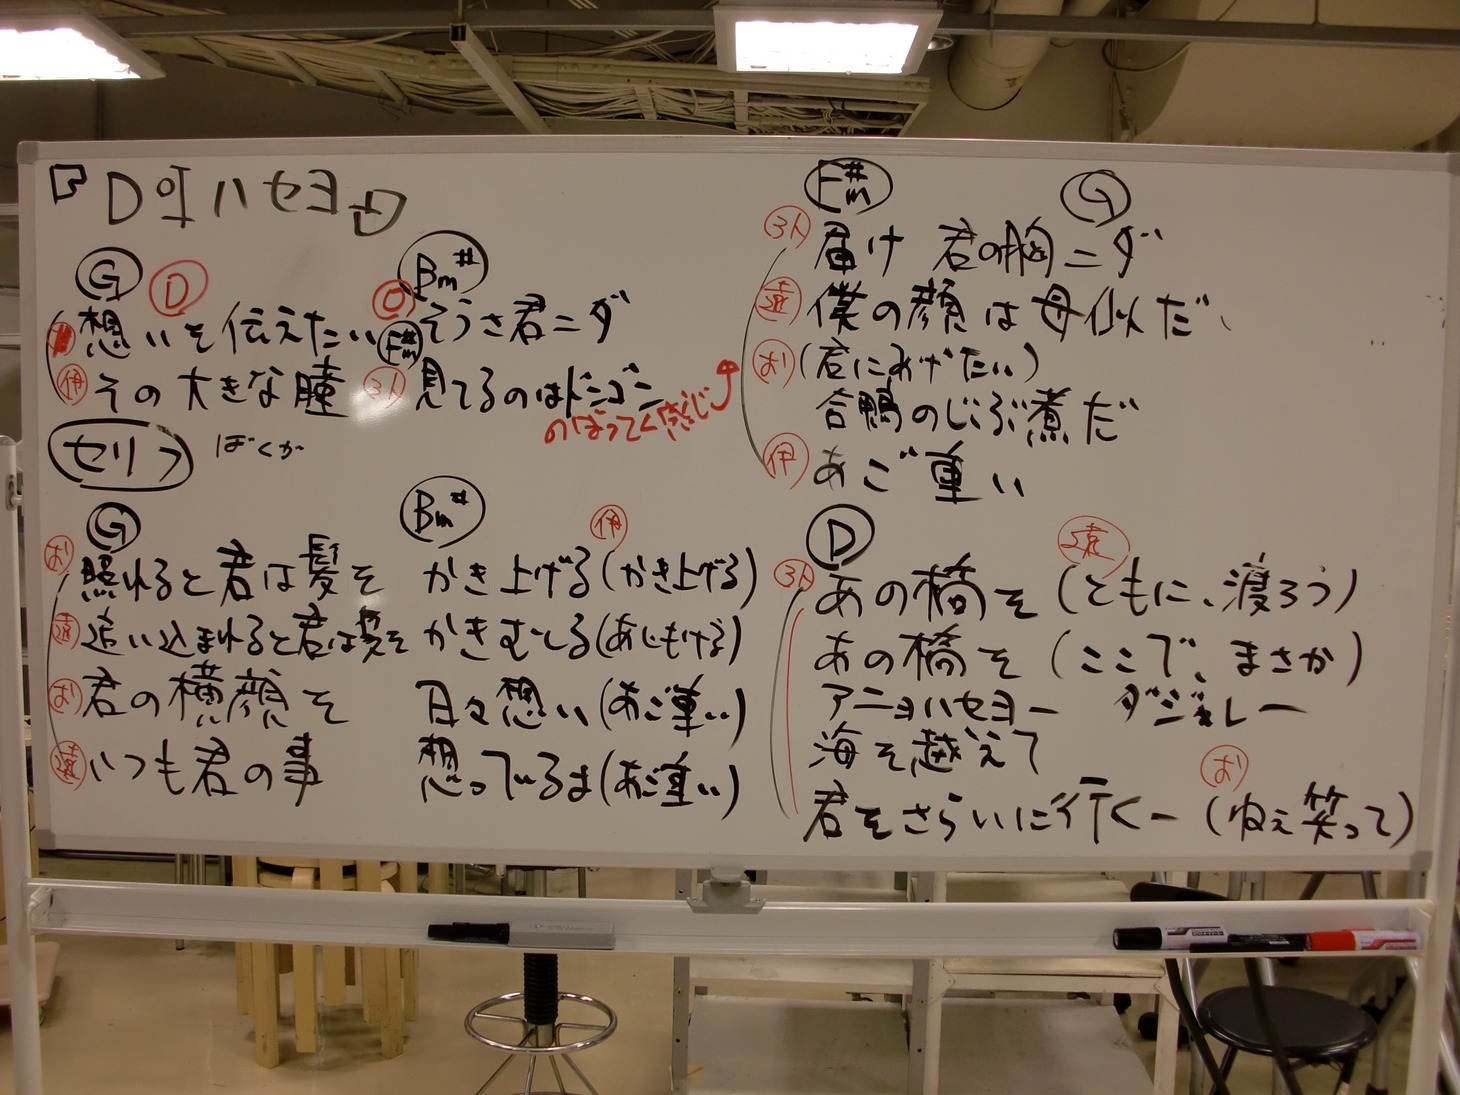 G D Bm#
想いを伝えたい そうさ君ニダ
F#m
伊 その大きな瞳 見てるのはドンゴン
のぼってく感じ
セリフ ぼくが
G Bm# 伊
お 照れると君は髪を かき上げる(かき上げる)
遠 追い込まれると君は髪を かきむしる(あじもげる)
お 君の横顔を 日々想い(あご重い)
遠 いつも君の事 想ってるよ(あご重い)
F#m G
届け 君の胸ニダ
遠 僕の顔は母似だ
お (君にあげたい)
合鴨のじぶ煮だ
伊 あご重い
D 遠
あの橋を (ともに、渡ろう)
あの橋を (ここで、まさか)
アニョハセヨー ダジャレー
海を越えて
お
君をさらいに行くー (ねえ笑って)